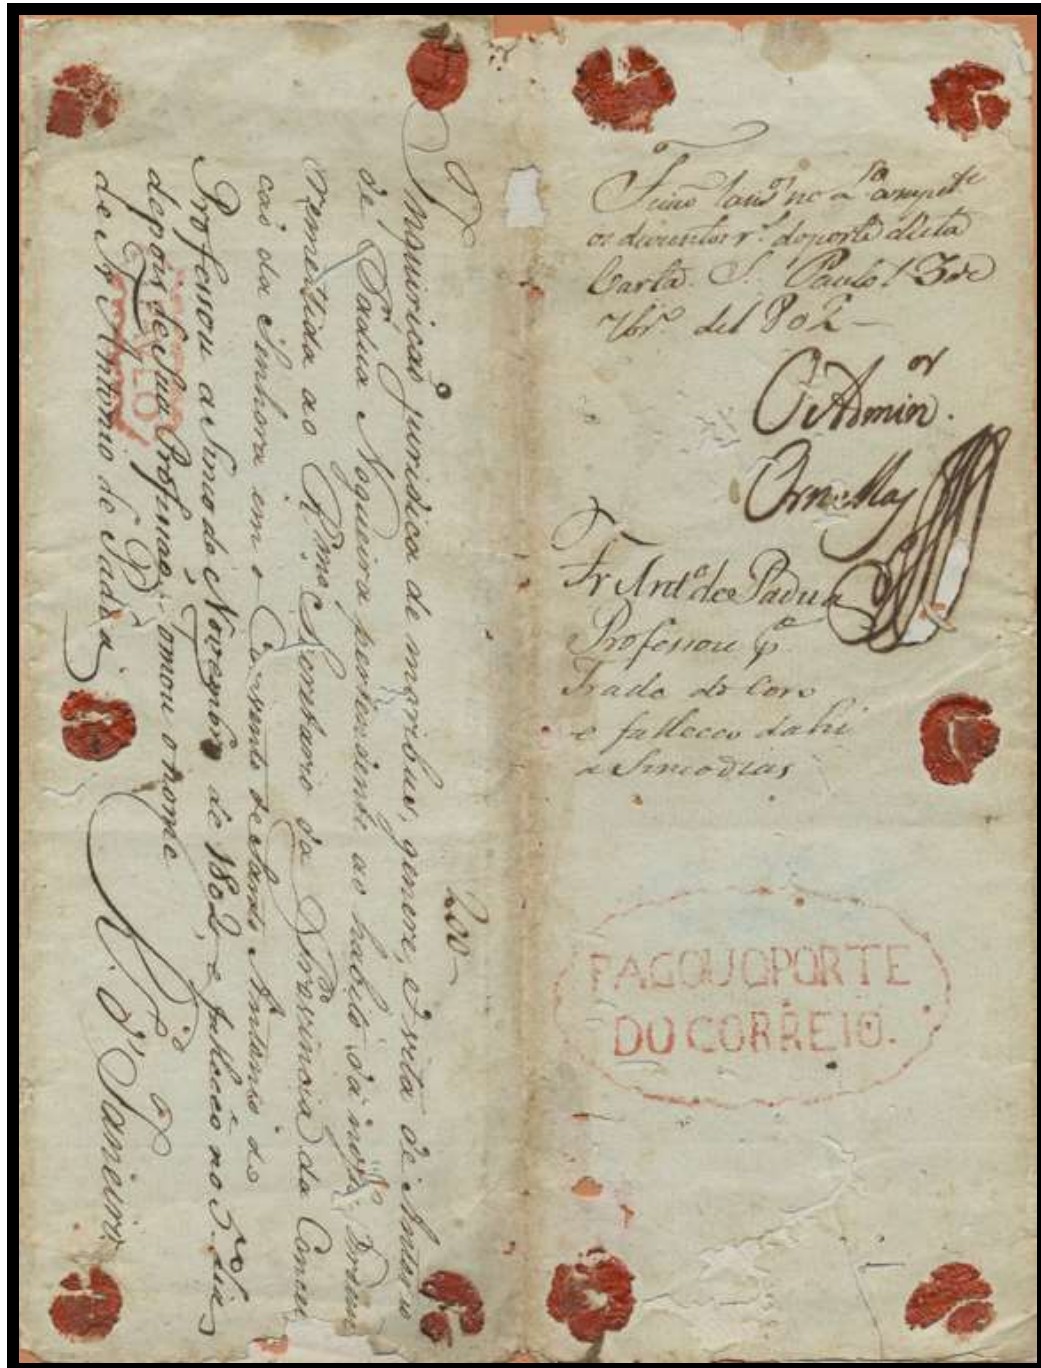 Inquiricaõ juridica de moribus, genere, e vita de Antonio
de Padua Nogueira pertencente ao habito da nossa Ordem
remettida ao R.mo Secretario da Provincia da Concei
caõ da Senhora em o Convento de Santo Antonio do
Professou a sinco de Novembro de 1802, e falleceo no 5.to dia
depois de sua Profissaõ, tomou o nome
de Fr Antonio de Padua
R.o d' Janeiro
200
os duzentos r.s do porte desta
Carta. S. Paulo 13 de
7br.o de 1802
O Admin.or
Ornellas
Fr Ant.o de Padua
Professou p.a
Frade do Coro
e falleceo dahi
a sinco dias
PAGOU O PORTE
DO CORREIO.